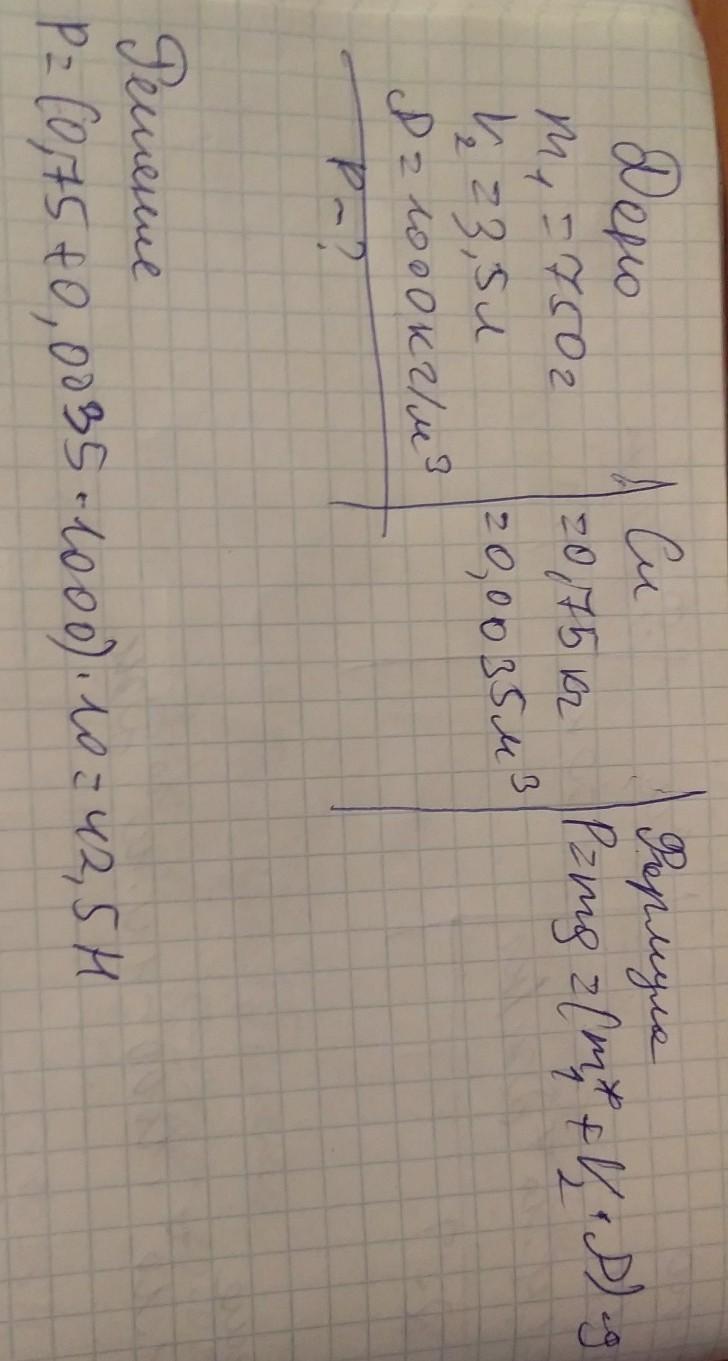 Дано
m₁ = 750 г
V₂ = 3,5 л
ρ = 1000 кг/м³
P - ?
Си
= 0,75 кг
= 0,0035 м³
Формула
P = mg = (m₁* + V₂ · ρ) · g
Решение
P = (0,75 + 0,0035 · 1000) · 10 = 42,5 Н